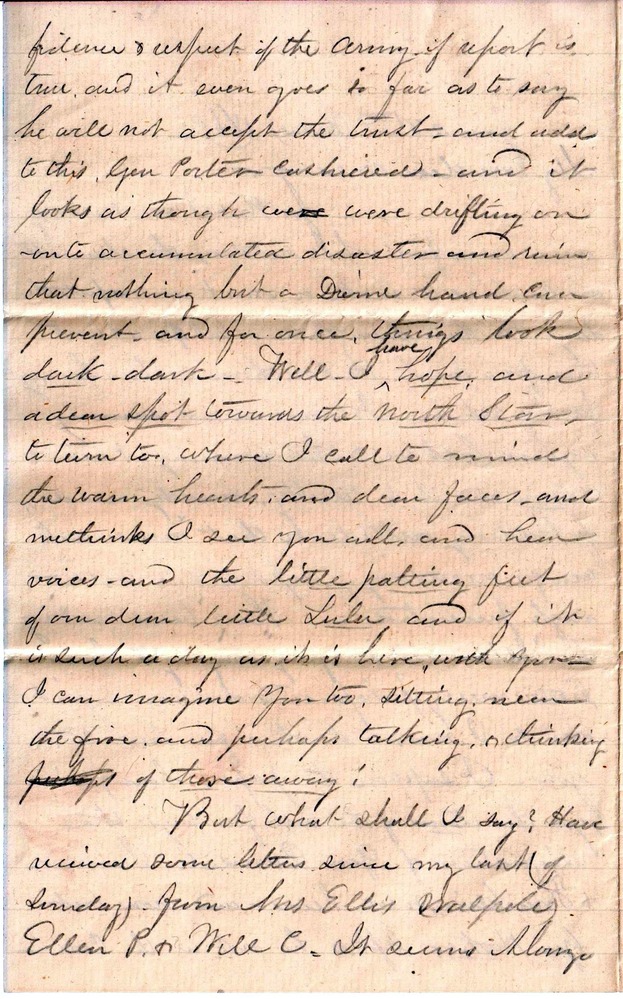 fidence & respect of the Army, if report is
true, and it even goes so far as to say
he will not accept the trust - and add
to this, Gen Porter cashiered - and it
looks as though were were drifting on
-onto accumulated disaster and ruin
that nothing but a Divine hand, can
prevent - and for once, things look
dark - dark - Well - I have hope, and
a dear spot towards the North Star,
to turn too, where I call to mind
the warm hearts, and dear faces - and
methinks I see you all, and hear
voices - and the little patting feet
of our dear little Lulu and if it
is such a day as it is here, with you -
I can imagine you too, sitting, near
the fire, and perhaps talking, or thinking
perhaps of those away!
But what shall I say? Have
received some letters since my last (of
Sunday) - from Mrs Ellis Walpole,
Ellen P. & Will C. - It seems Alonzo